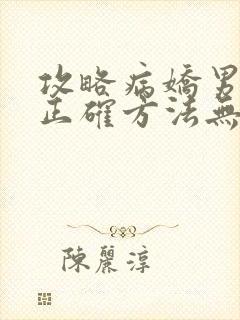 攻略病嬌男
正確方法無
陳麗淳